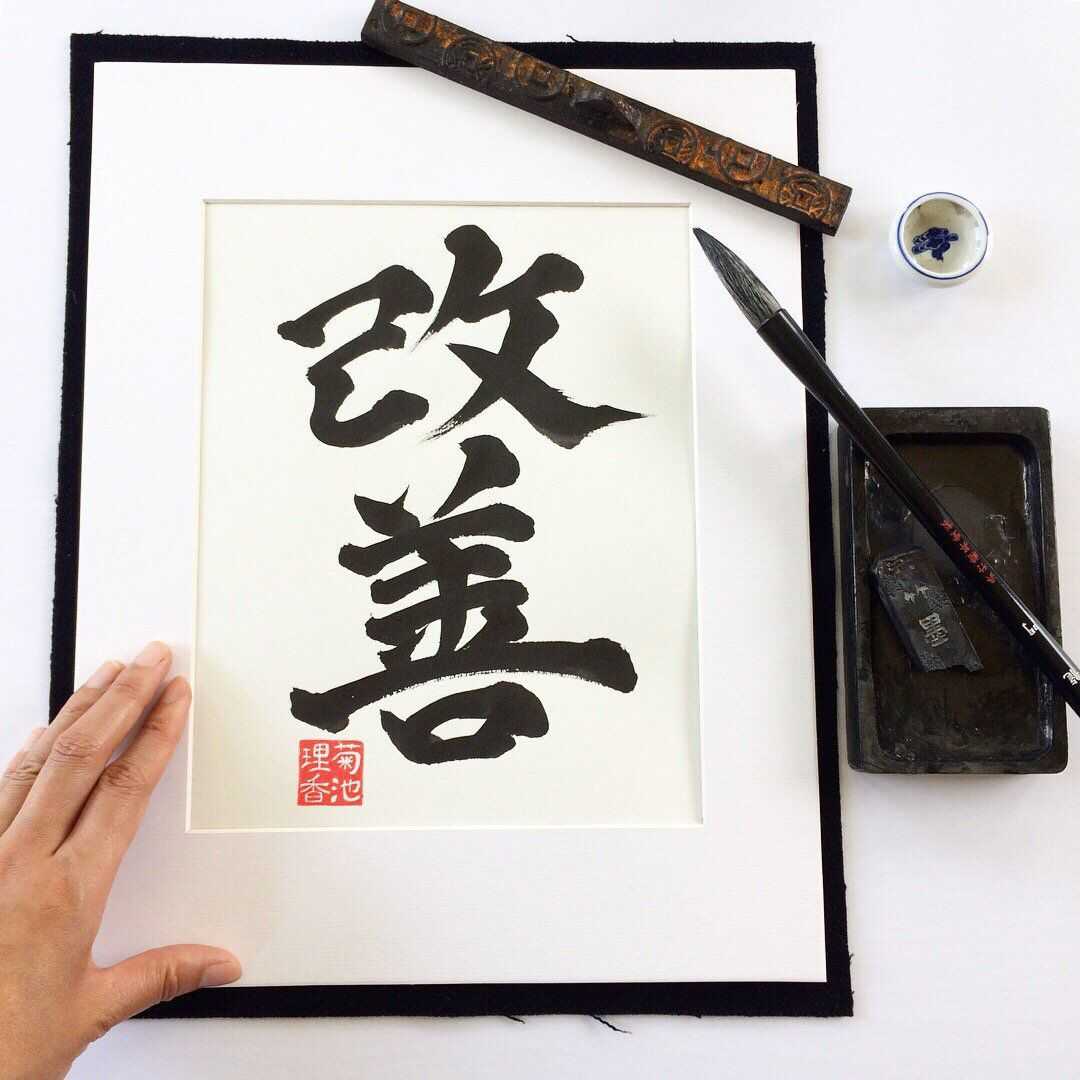 改善
菊池
理香
墨